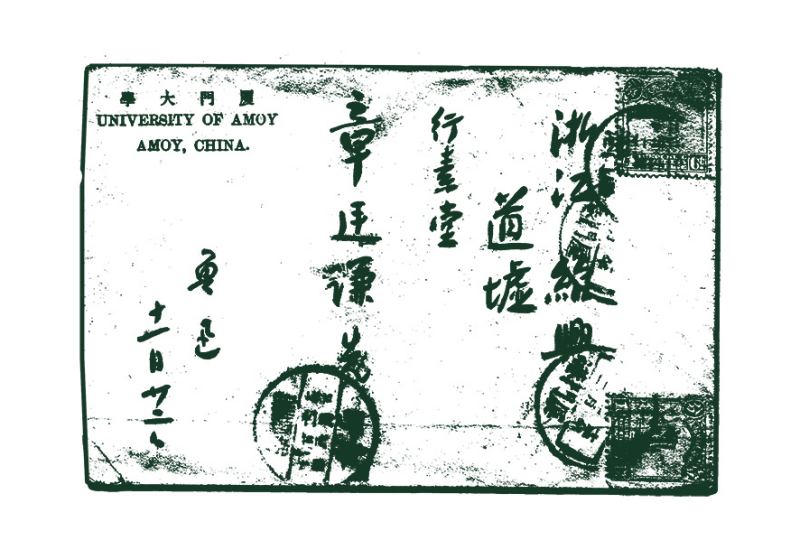 厦門大學
UNIVERSITY OF AMOY
AMOY, CHINA.
浙江紹興
道墟
行素堂
章廷謙
魯迅
十一月廿二日